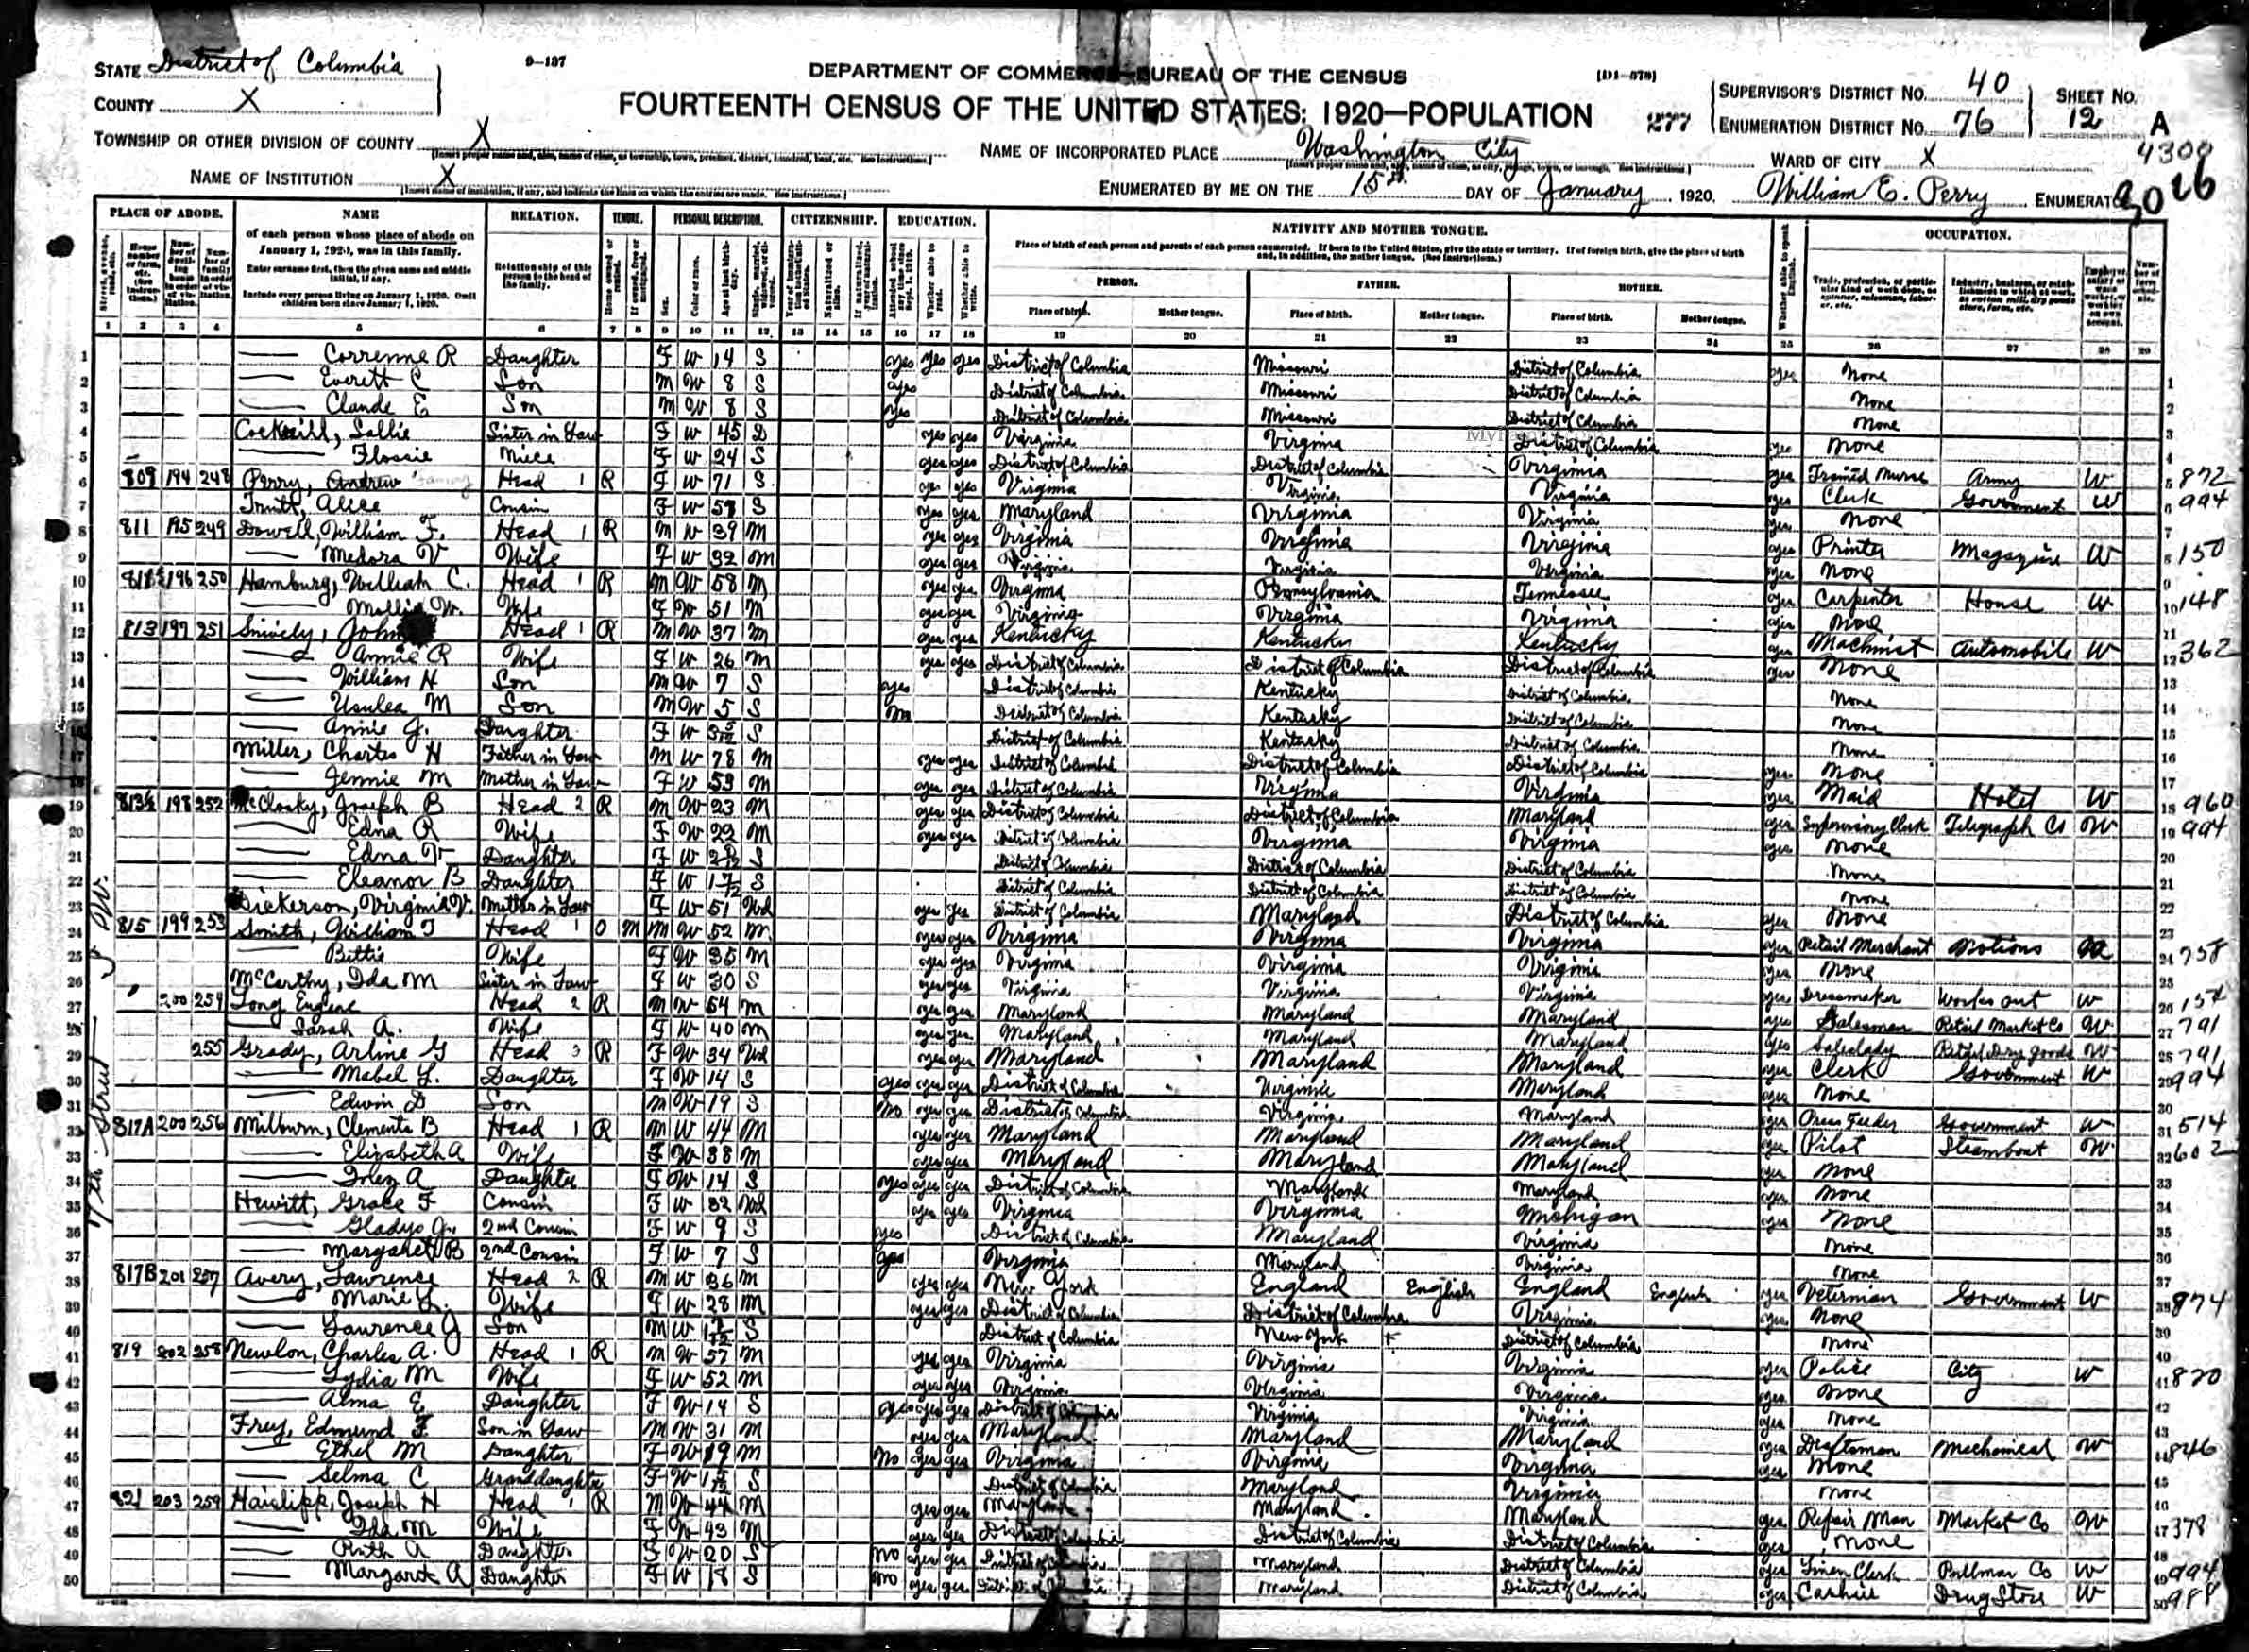 STATE District of Columbia
9-137
DEPARTMENT OF COMMERCE—BUREAU OF THE CENSUS
[D1-578]
SUPERVISOR'S DISTRICT NO. 40
SHEET NO.
COUNTY X
FOURTEENTH CENSUS OF THE UNITED STATES: 1920—POPULATION
277
ENUMERATION DISTRICT NO. 76
12 A
TOWNSHIP OR OTHER DIVISION OF COUNTY X
NAME OF INCORPORATED PLACE Washington City
WARD OF CITY X
4300
NAME OF INSTITUTION X
ENUMERATED BY ME ON THE 15th DAY OF January, 1920. William E. Perry ENUMERATOR
PLACE OF ABODE. NAME RELATION. TENURE. PERSONAL DESCRIPTION. CITIZENSHIP. EDUCATION. NATIVITY AND MOTHER TONGUE. OCCUPATION.
of each person whose place of abode on January 1, 1920, was in this family.
Enter surname first, then the given name and middle initial, if any.
Include every person living on January 1, 1920. Omit children born since January 1, 1920.
Relationship of this person to the head of the family.
Place of birth of each person and parents of each person enumerated. If born in the United States, give the state or territory. If of foreign birth, give the place of birth and, in addition, the mother tongue. (See Instructions.)
PERSON. FATHER. MOTHER.
Place of birth. Mother tongue. Place of birth. Mother tongue. Place of birth. Mother tongue.
1 2 3 4 5 6 7 8 9 10 11 12 13 14 15 16 17 18 19 20 21 22 23 24 25 26 27 28 29
1 Correnne R Daughter F W 14 S yes yes yes District of Columbia Missouri District of Columbia yes None
2 Everett C Son M W 8 S yes District of Columbia Missouri District of Columbia None
3 Claude E Son M W 8 S yes District of Columbia Missouri District of Columbia None
4 Sallie Sister in Law F W 45 D yes yes Virginia Virginia District of Columbia yes None
5 Flossie Niece F W 24 S yes yes District of Columbia District of Columbia Virginia yes Trained Nurse Army W 872
6 809 194 248 Perry, Head 1 R F W 71 S yes yes Virginia Virginia Virginia yes Clerk Government W 994
7 Truitt, Alice Cousin F W S yes yes Maryland Virginia Virginia yes None
8 811 195 249 Dowell, William F. Head 1 R M W 39 M yes yes Virginia Virginia Virginia yes Printer Magazine W 150
9 Medora V Wife F W 32 M yes yes Virginia Virginia Virginia yes None
10 811½ 196 250 Hamburg, William C. Head 1 R M W 58 M yes yes Virginia Pennsylvania Tennessee yes Carpenter House W 148
11 Mollie W. Wife F W 51 M yes yes Virginia Virginia Virginia yes None
12 813 197 251 Snively, John Head 1 R M W 37 M yes yes Kentucky Kentucky Kentucky yes Machinist Automobile W 362
13 Annie R Wife F W 26 M yes yes District of Columbia District of Columbia District of Columbia yes None
14 William H Son M W 7 S yes District of Columbia Kentucky District of Columbia None
15 M Son M W 5 S no District of Columbia Kentucky District of Columbia None
16 Annie J. Daughter F W S District of Columbia Kentucky District of Columbia None
17 Miller, Charles H Father in Law M W 78 M yes yes District of Columbia District of Columbia District of Columbia yes None
18 Jennie M Mother in Law F W 53 M yes yes District of Columbia Virginia Virginia yes Maid Hotel W 960
19 813½ 198 252 McClosky, Joseph B Head 2 R M W 23 M yes yes District of Columbia District of Columbia Maryland yes Supervisory Clerk Telegraph Co W 994
20 Edna R Wife F W 22 M yes yes District of Columbia Virginia Virginia yes None
21 Edna V Daughter F W S District of Columbia District of Columbia District of Columbia None
22 Eleanor B Daughter F W S District of Columbia District of Columbia District of Columbia None
23 Dickerson, Virginia V. Mother in Law F W 51 Wd yes yes District of Columbia Maryland District of Columbia yes None
24 815 199 253 Smith, William T Head 1 O M M W 52 M yes yes Virginia Virginia Virginia yes Retail Merchant Notions 758
25 Bittie Wife F W 35 M yes yes Virginia Virginia Virginia yes None
26 McCarthy, Ida M Sister in Law F W 30 S yes yes Virginia Virginia Virginia yes Dressmaker Works out W 154
27 200 254 Long Eugene Head 2 R M W 54 M yes yes Maryland Maryland Maryland yes Salesman Retail Market Co W 791
28 Sarah A. Wife F W 40 M yes yes Maryland Maryland Maryland yes Saleslady Retail Dry goods W 791
29 255 Grady, Arline G Head 3 R F W 34 Wd yes yes Maryland Maryland Maryland yes Clerk Government W 994
30 Mabel L. Daughter F W 14 S yes yes yes District of Columbia Virginia Maryland yes None
31 Edwin D Son M W 19 S no yes yes District of Columbia Virginia Maryland yes Press Feeder Government W 514
32 817A 200 256 Milburn, Clements B Head 1 R M W 44 M yes yes Maryland Maryland Maryland yes Pilot Steamboat W 602
33 Elizabeth A Wife F W 38 M yes yes Maryland Maryland Maryland yes None
34 Inez A Daughter F W 14 S yes yes yes District of Columbia Maryland Maryland yes None
35 Hewitt, Grace F Cousin F W 32 Wd yes yes Virginia Virginia Michigan yes None
36 Gladys J. 2nd Cousin F W 9 S yes District of Columbia Maryland Virginia None
37 Margaret B 2nd Cousin F W 7 S yes Virginia Maryland Virginia None
38 817B 201 257 Avery, Lawrence Head 2 R M W 36 M yes yes New York England English England English yes Government W 874
39 Marie L. Wife F W 28 M yes yes District of Columbia District of Columbia Virginia yes None
40 Lawrence J Son M W S District of Columbia New York District of Columbia None
41 819 202 258 Newlon, Charles A. Head 1 R M W 57 M yes yes Virginia Virginia Virginia yes Police City W 820
42 Lydia M Wife F W 52 M yes yes Virginia Virginia Virginia yes None
43 Alma E Daughter F W 14 S yes yes yes District of Columbia Virginia Virginia yes None
44 Frey, Edmund F Son in Law M W 31 M yes yes Maryland Maryland Maryland yes Draftsman Mechanical W 846
45 Ethel M Daughter F W 19 M No yes yes Virginia Virginia Virginia yes None
46 Selma C Granddaughter F W S District of Columbia Maryland Virginia None
47 821 203 259 Haislipp, Joseph H Head 1 R M W 44 M yes yes Maryland Maryland Maryland yes Repair Man Market Co W 378
48 Ida M Wife F W 43 M yes yes District of Columbia District of Columbia District of Columbia yes None
49 Ruth A Daughter F W 20 S No yes yes District of Columbia Maryland District of Columbia yes Linen Clerk Pullman Co W 994
50 Margaret A Daughter F W 18 S No yes yes District of Columbia Maryland District of Columbia yes Cashier Drug Store W 988